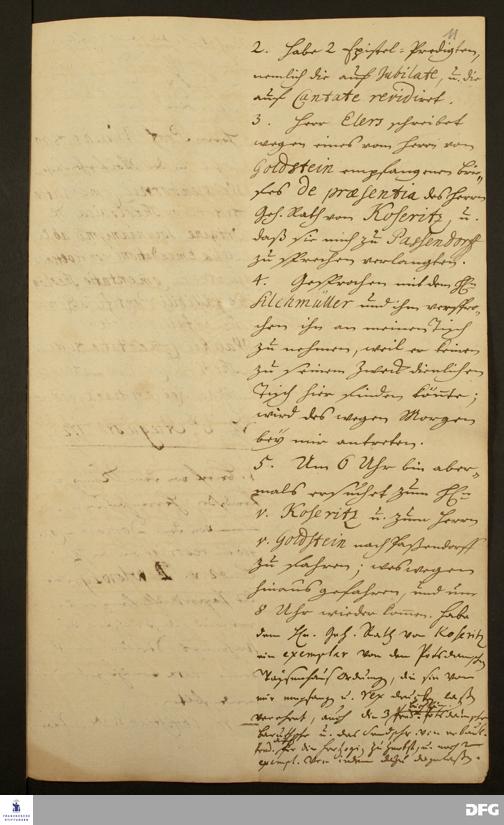 11
2. Habe 2 Epistel-Predigten,
nemlich die auf Jubilate, u. die
auf Cantate revidiret.
3. Herr Elers schreibet
wegen eines vom Herrn von
Goldstein empfangenen Brie-
fes de præsentia des Herrn
Geh. Rath von Koseritz, u.
daß sie mich zu Passendorff
zu sprechen verlangten.
4. Gesprochen mit dem H.
Kilchmüller und ihm verspro-
chen ihn an meinen Tisch
zu nehmen, weil er keinen
zu seinem Zweck dienlichen
Tisch hier finden könte;
wird deswegen Morgen
bey mir antreten.
5. Um 6 Uhr bin aber-
mals ersuchet zum H.
v. Koseritz u. zum Herrn
v. Goldstein nach Passendorff
zu fahren; weswegen
hinaus gefahren, und um
8 Uhr wieder kommen. Habe
dem H. Geh. Rath von Koseritz
ein exemplar von dem Potsdamschen
Waysenhaus Ordnung, die sie von
mir empfangen u. drucken laßen
verehret, auch die 3
u. das
für die Herzogin zu u. noch 2
exempl. von
FRANCKESCHE STIFTUNGEN
DFG